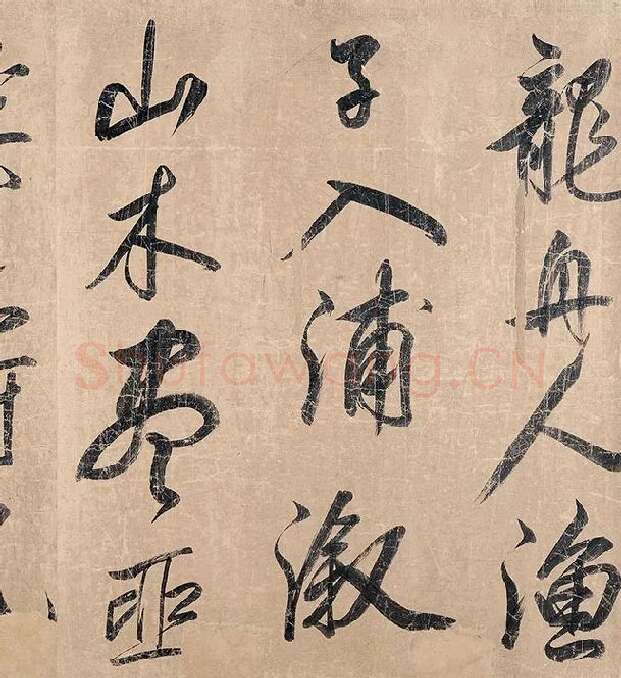 龍舟人漁
子入浦漵
山木盡亞
Shufawang.CN